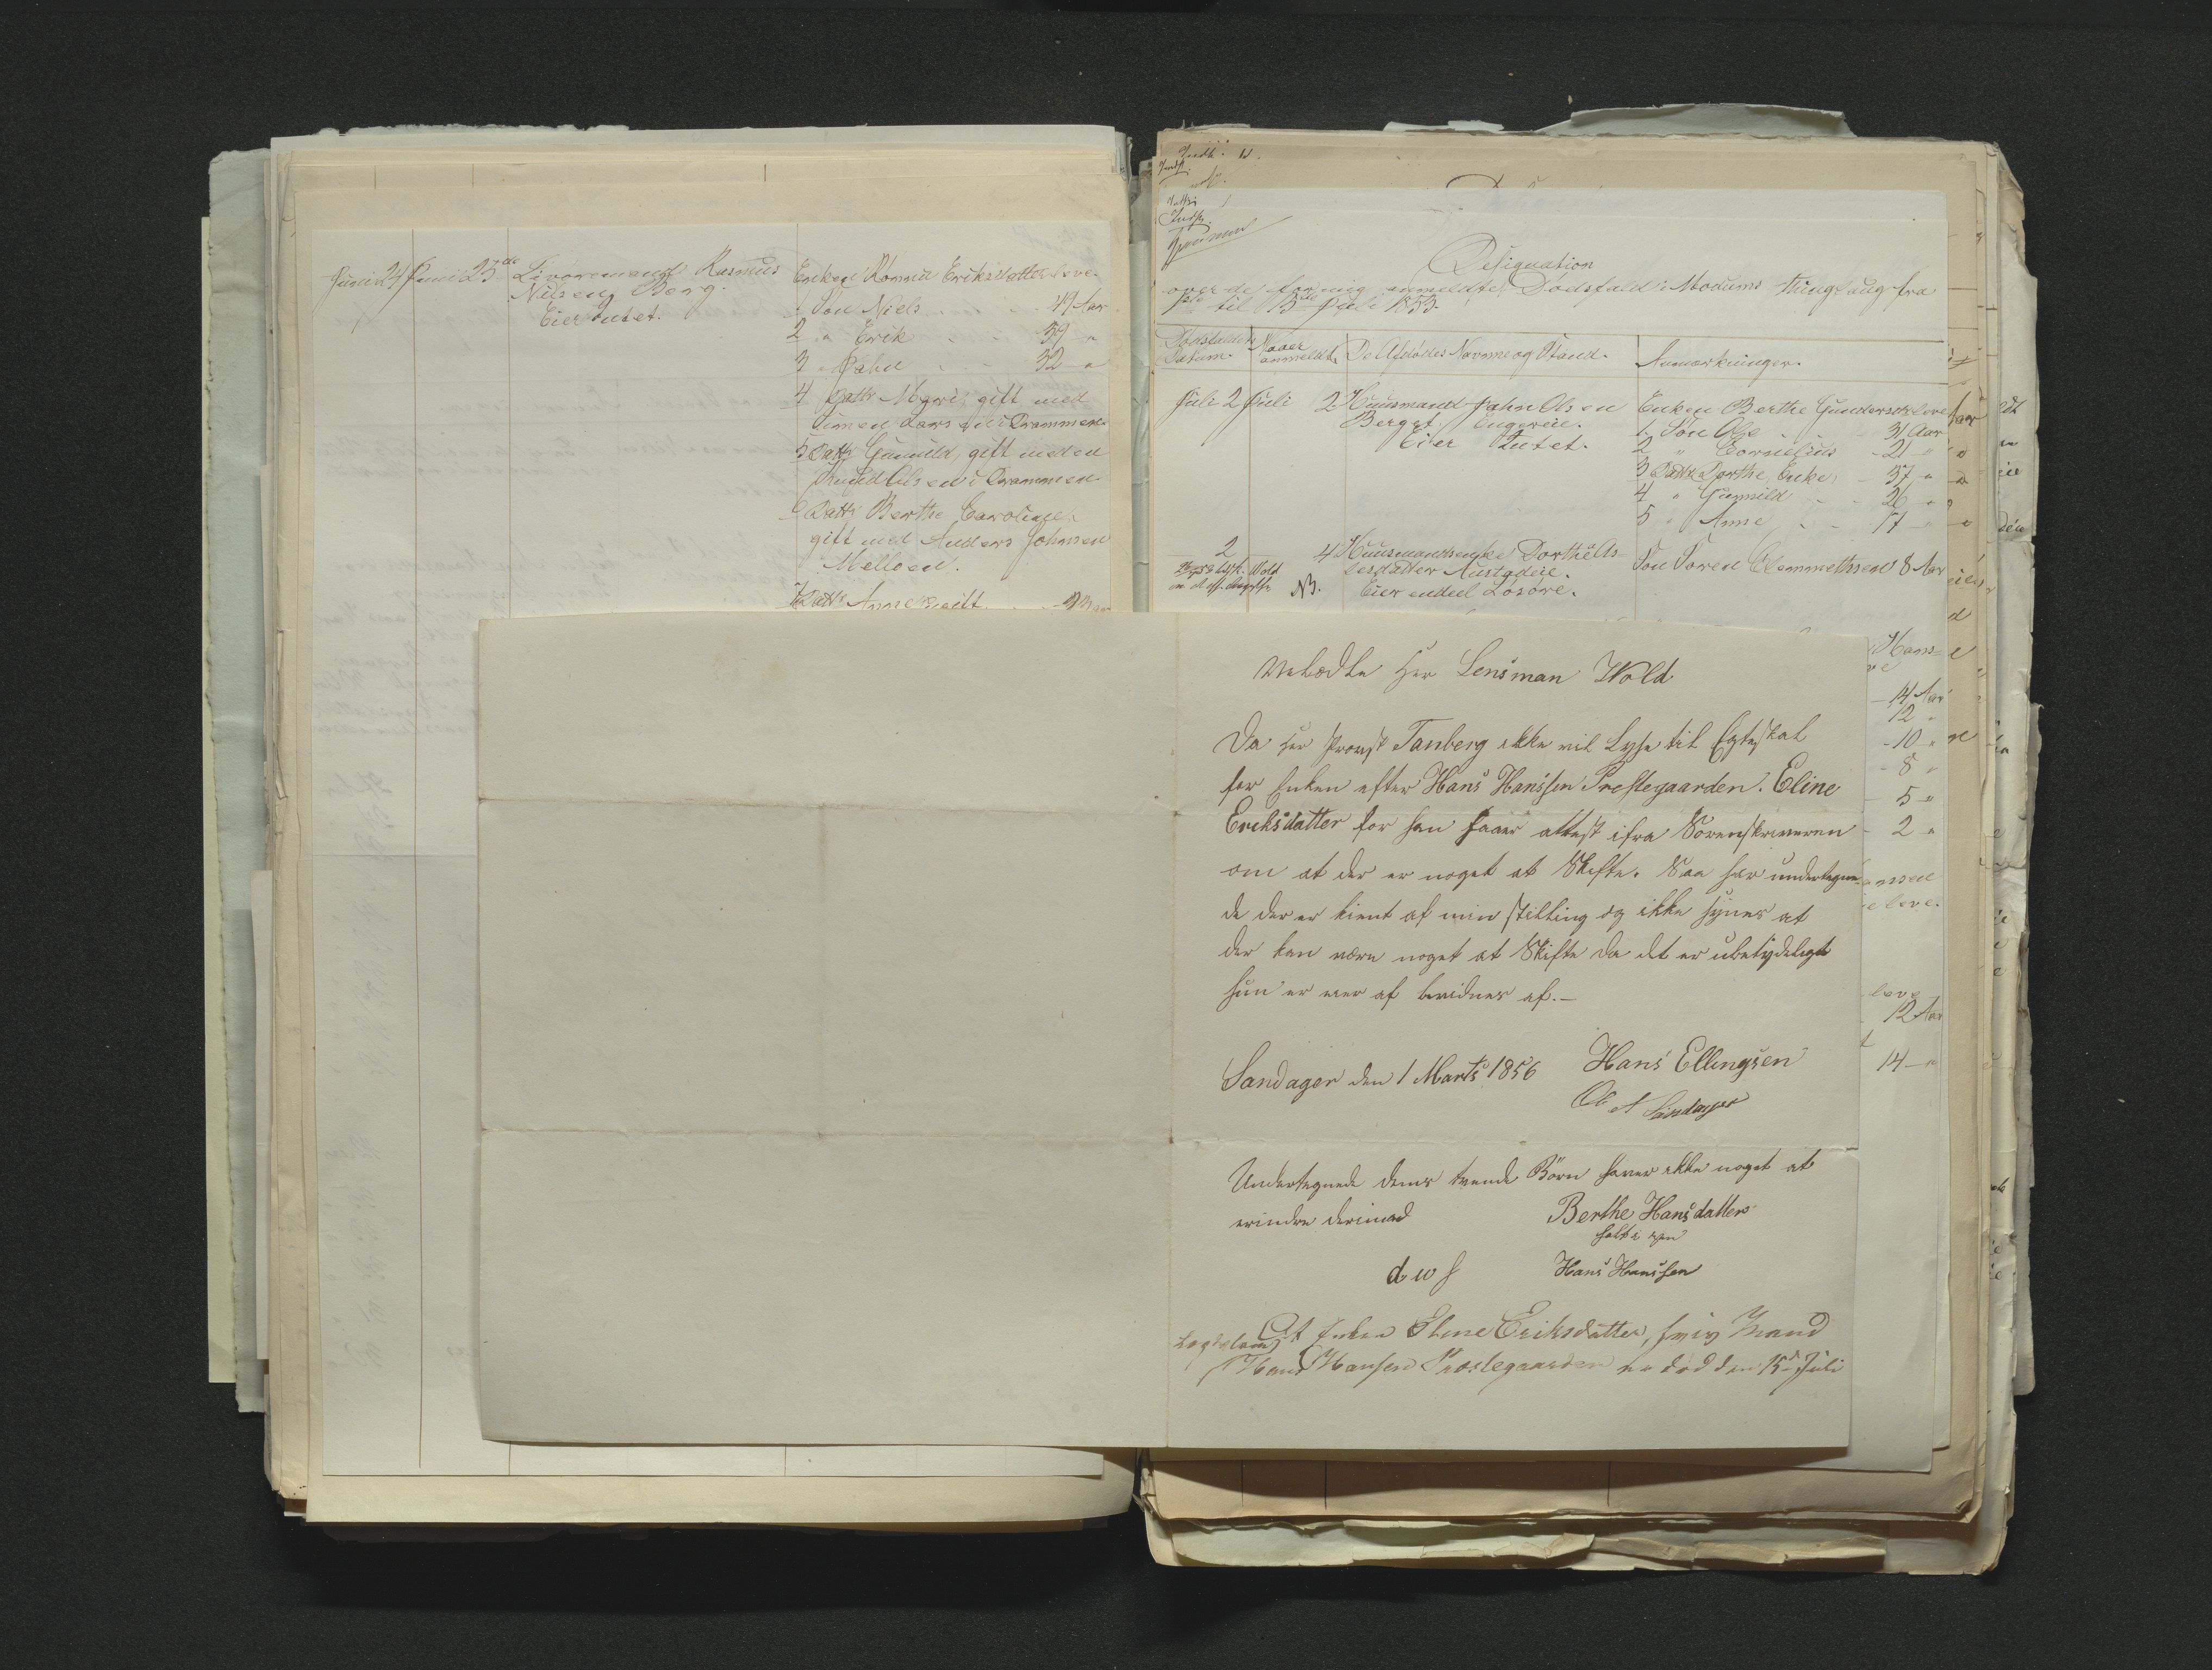 Juni 24 Juni 25de Livøremand Rasmus
Nilsen Berg.
Eier intet.
Enken Ronna Eriksdatter leve.
1 Søn Niels 41 Aar
2 " Erik 39 "
3 " Jahn 32 "
4 Dattr Mogri gift med
Simen Larsen i Drammen
5 Dattr Gunnild, gift med en
Knud Olsen i Drammen
6 Dattr Berthe Caroline,
gift med Anders Johnsen
Melloen.
7 Dattr Anne ugift
Designation
over de for mig anmeldte Dødsfald i Modums Thinglaug fra
1ste til 15de Juli 1853.
Dødsfaldets Datum.
Naar anmeldt.
De Afdødes Navne og Stand.
Anmærkninger.
Juli 2 Juli 2 Huusmand Jahn Olsen
Berget Engereie.
Eier Intet.
Enken Berthe Gundersdr leve
1. Søn Ole 31 Aar
2 " Cornelius 21 "
3 Dattr Dorthe, Enke, 37 "
4 " Gunnild 26 "
5 " Anne 17 "
2 4 Huusmandsenke Dorthe As-
lesdatter Austadeie.
NB. Eier endeel Løsøre.
Søn Søren Clemmethsen 8 Aar
Hans-
14 Aar
12 "
10 "
8 "
5 "
2 "
leve.
leve
12 Aar
14 "
Velædle Her Lensman Wold
Da Her Provst Tanberg ikke vil Lyse til Egteskab
for Enken efter Hans Hanssen Prestegaarden. Eline
Eriksdatter for han faaer attest ifra Sorenskriveren
om at der er noget at Skifte. Saa har undertegne-
de der er kient af min stilling og ikke synes at
der kan være noget at Skifte da det er ubetydeligt
hun er eier af
Sandager den 1 Marts 1856 Hans Ellingsen
Sandager
Undertegnede deres tvende Börn haver ikke noget at
erindre derimod
Berthe Hansdatter
holt i pen
Hans Hanssen
At Enken Eline Eriksdatter, hvis Mand
Hans Hansen Præstegaarden er død den 15de Juli